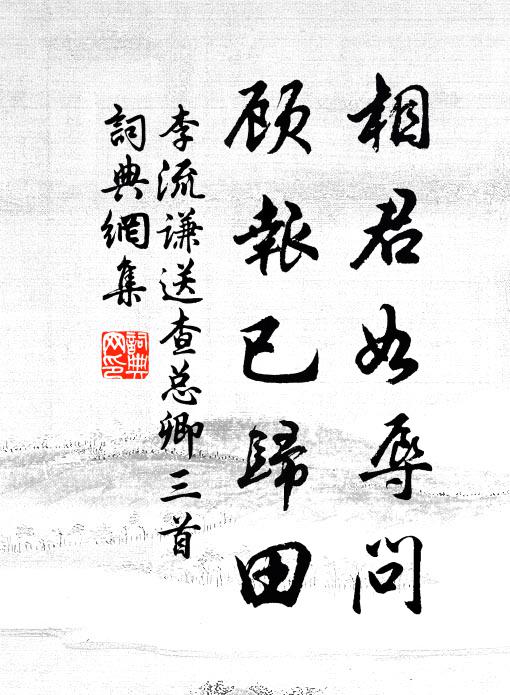 相君如辱问
顾报已歸田
李流谦送查总卿三首
詞典網集
詞典网印